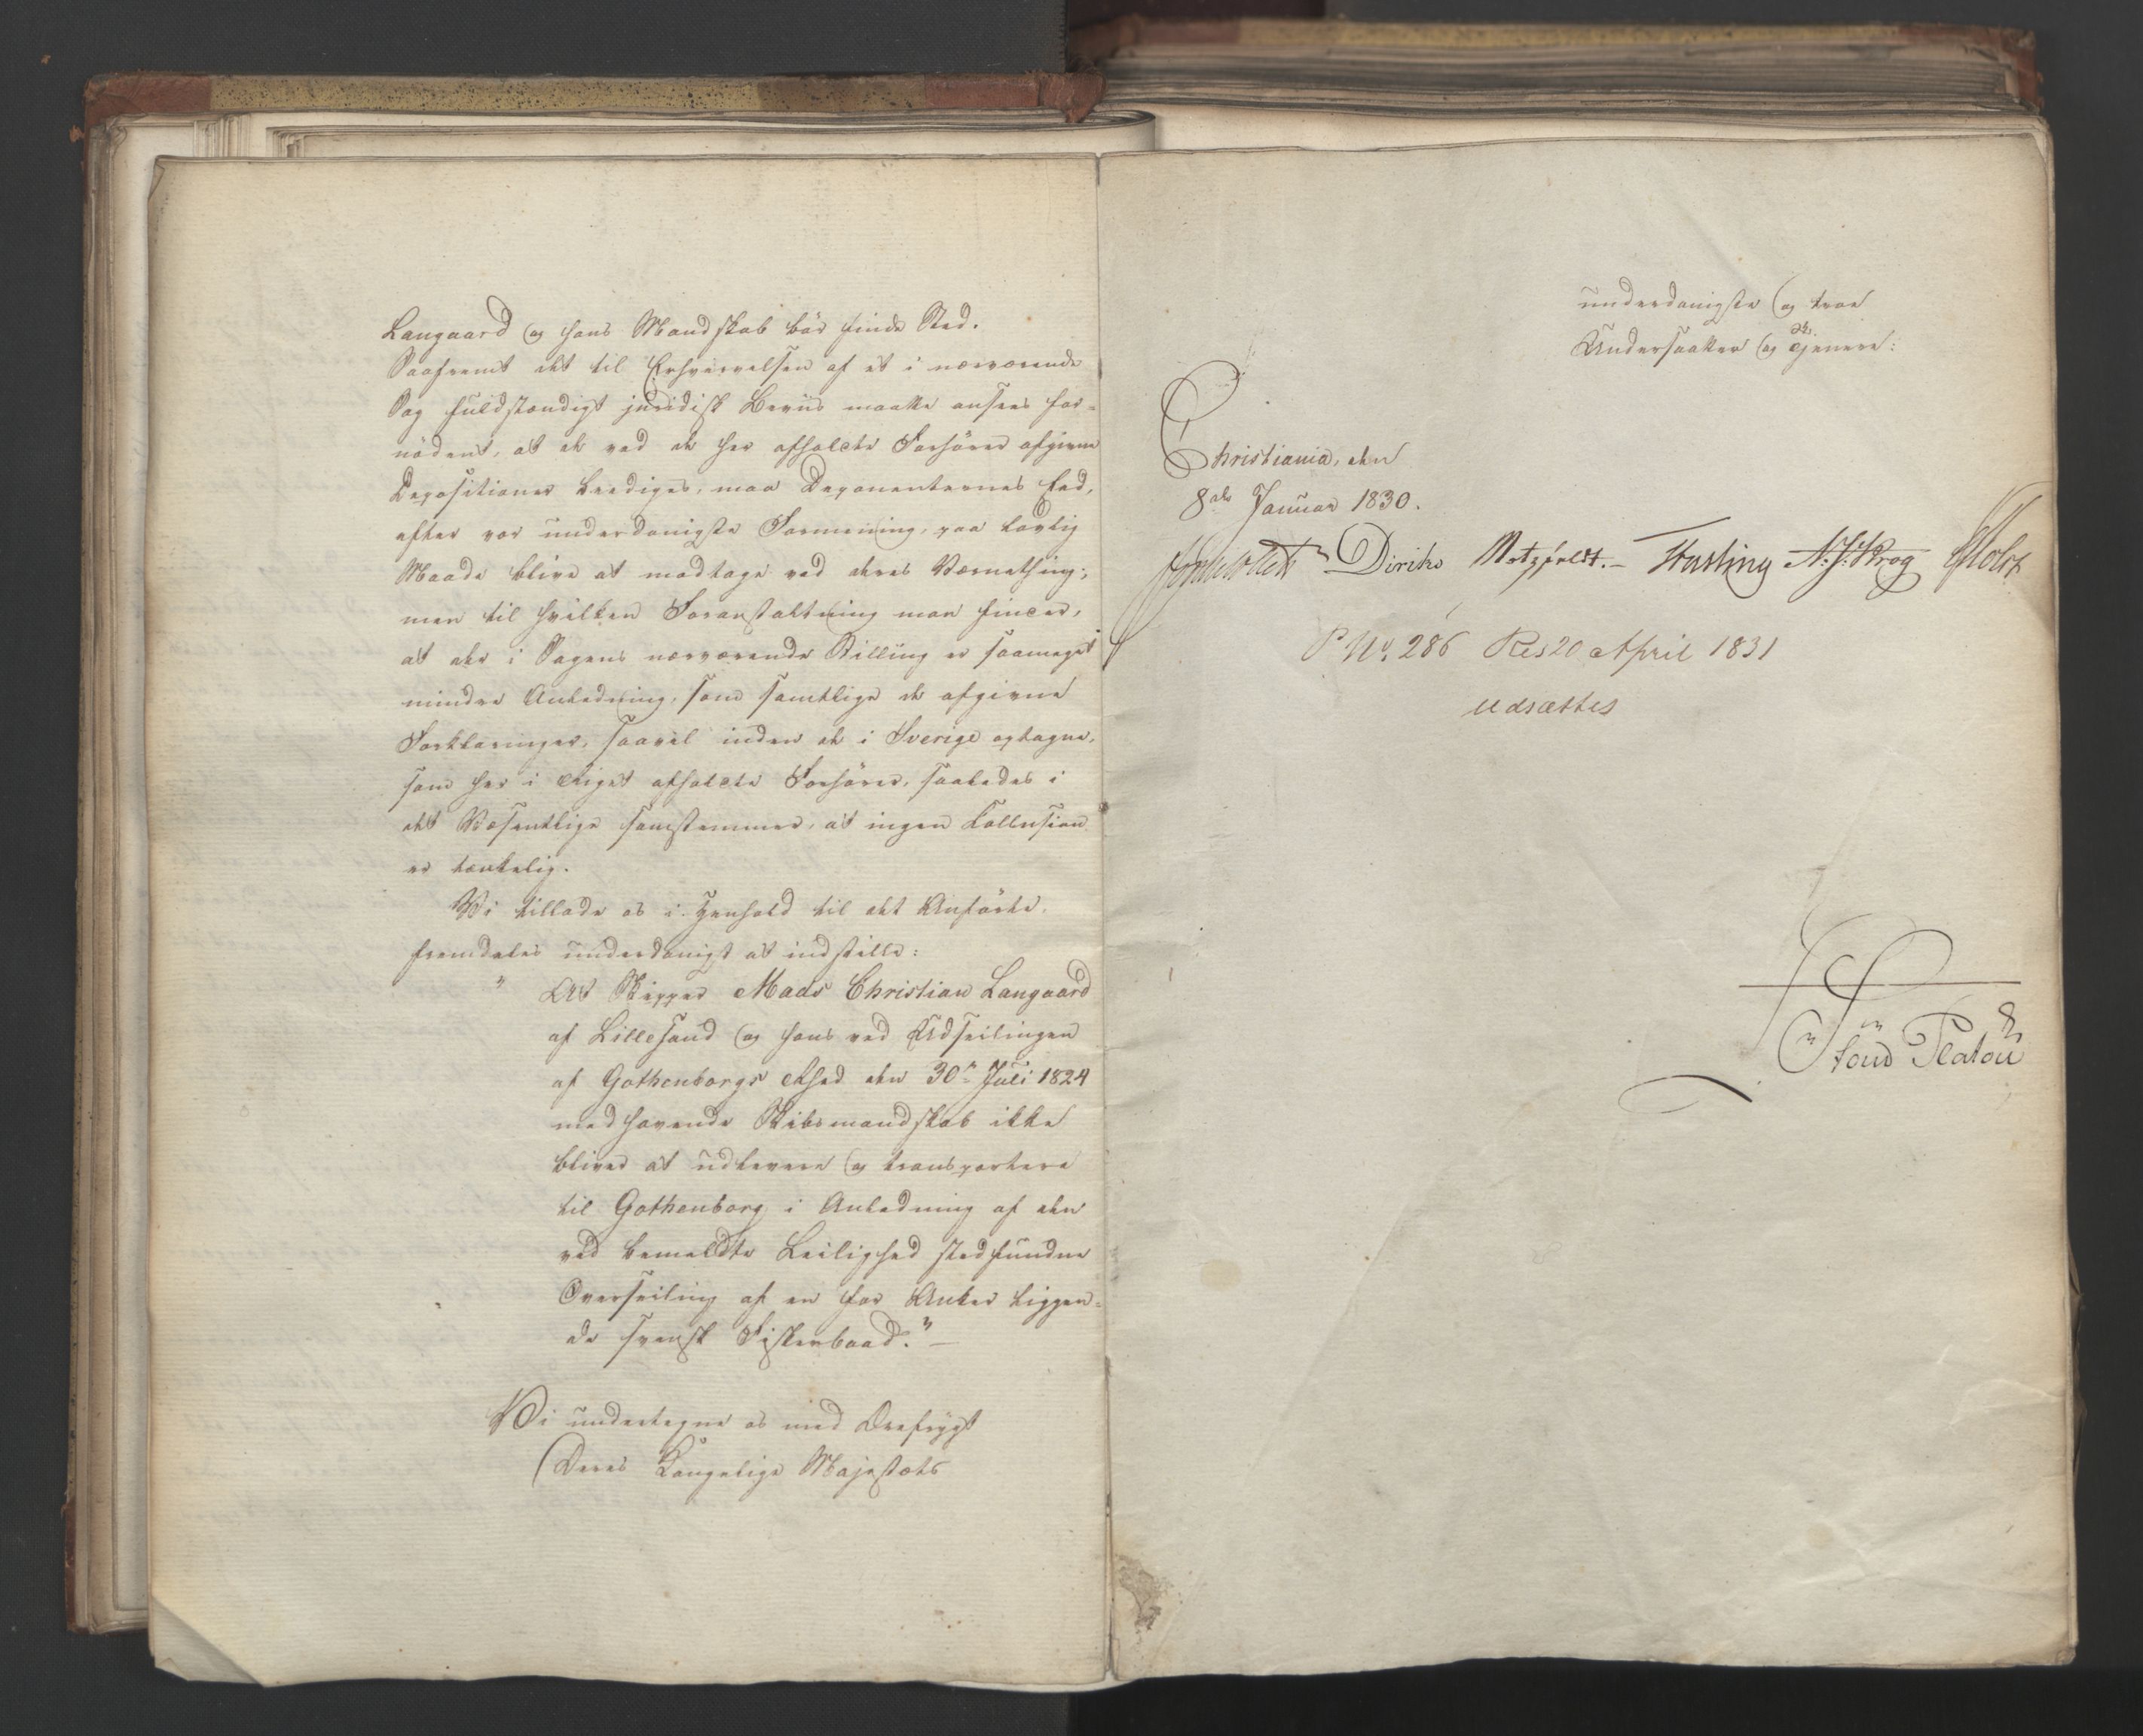 Langaard og hans Mandskab bör finde Sted.
Saafremt det til Erhvervelsen af et i nærværende
Sag fuldstændigt juridisk Beviis maatte ansees for=
nödent, at de ved de her afholdte Forhörer afgivne
Depositioner beediges, maa Deponenternes Eed,
efter vor underdanigste Formening, paa lovlig
Maade blive at modtage ved deres Værnething;
men til hvilken Foranstaltning man finder,
at der i Sagens nærværende Stilling er saameget
mindre Anledning, som samtlige de afgivne
Forklaringer, saavel under de i Sverige optagne,
som her i Riget afholdte Forhörer, saaledes i
det Væsentlige samstemmer, at ingen Collusion
er tænkelig.
Vi tillade os i Henhold til det Anförte,
fremdeles underdanigst at indstille:
" At Skipper Mads Christian Langaard
af Lillesand og hans ved Udseilingen
af Gothenborgs Rhed den 30te Juli 1824
medhavende Skibsmandskab ikke
bliver at udlevere og transportere
til Gothenborg i Anledning af den
ved bemeldte Leilighed stedfundne
Overseiling af en for Anker liggen=
de svensk Fiskerbaad." —
Vi undertegne os med Ærefrygt
Deres Kongelige Majestæts
underdanigste og troe
Undersaatter og Tjenere:
Christiania, den
8de Januar 1830.
Diriks Motzfeldt. — Fasting N. J. Krog Holst
P No. 286 Res 20 April 1831
Udsættes
Stoud Platou